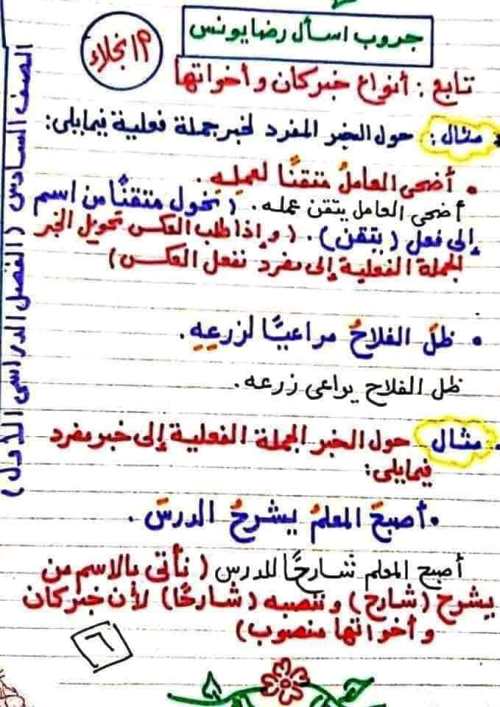 جروب اسأل رضا يونس
م/ نجلاء
تابع: أنواع خبر كان وأخواتها
مثال: حول الخبر المفرد لخبر جملة فعلية فيما يلى:
• أضحى العاملُ متقنًا لعملِهِ.
أضحى العامل يتقن عمله. (نحول متقنًا من اسم
إلى فعل (يتقن). (وإذا طلب العكس تحويل الخبر
الجملة الفعلية إلى مفرد نفعل العكس)
• ظلَ الفلاحُ مراعيًا لزرعِهِ.
ظل الفلاح يراعى زرعه.
مثال حول الخبر الجملة الفعلية إلى خبر مفرد
فيما يلى:
• أصبحَ المعلمُ يشرحُ الدرسَ.
أصبح المعلم شارحًا للدرس (نأتى بالاسم من
يشرح (شارح) وننصبه (شارحًا) لأن خبر كان
وأخواتها منصوب)
٦
الصف السادس (الفصل الدراسى الأول)